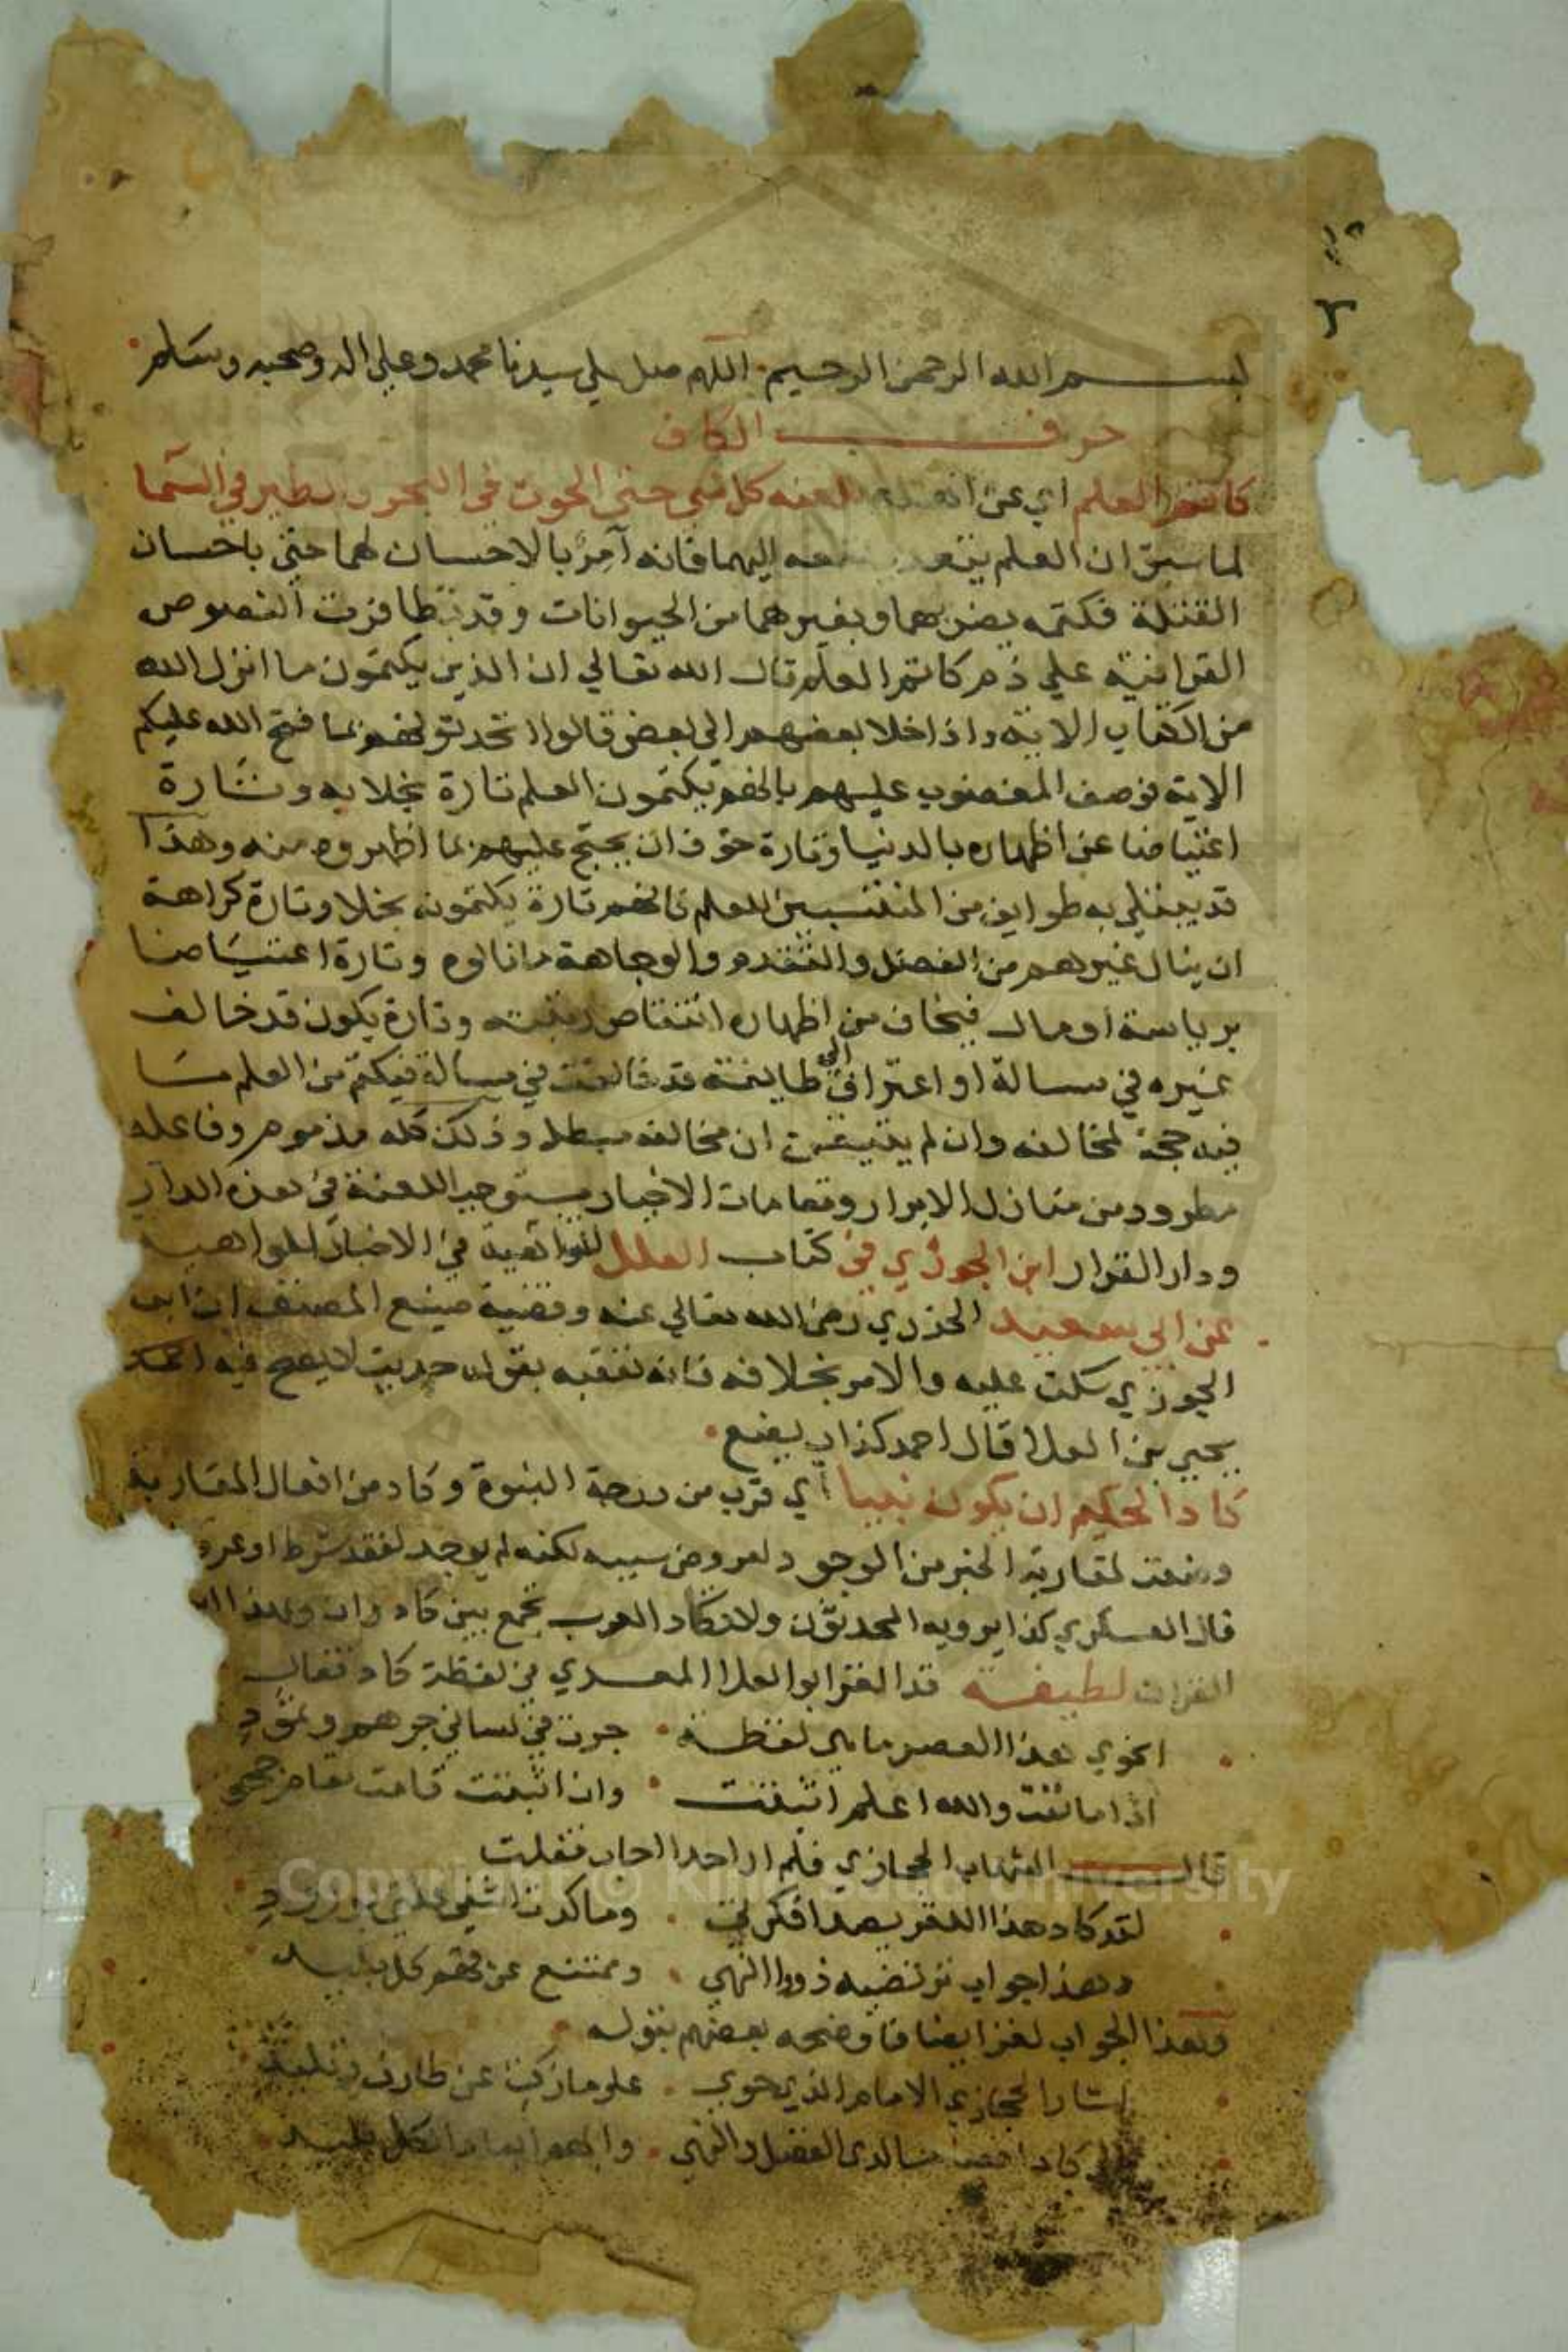 بســـــم الله الرحمن الرحيم اللهم صل على سيدنا محمد وعلى اله وصحبه وسلم
حرف الكاف
كاتم العلم اي عن اهله يلعنه كل شي حتى الحوت في البحر والطير في السما
لما سبق ان العلم يتعدى نفعه اليهما فانه آمر بالاحسان لهما حتى باحسان
القتلة فكتمه يضر بهما وبغيرهما من الحيوانات وقد تظافرت النصوص
القرانية على ذم كاتم العلم قال الله تعالي ان الذين يكتمون ما انزل الله
من الكتاب الاية واذا خلا بعضهم الى بعض قالوا اتحدثونهم بما فتح الله عليكم
الاية فوصف المغضوب عليهم بانهم يكتمون العلم تارة بخلا به وتارة
اعتياضا عن اظهاره بالدنيا وتارة خوفا ان يحتج عليهم بما اظهروه منه وهذا
قد يبتلي به طوايف من المنتسبين للعلم فانهم تارة يكتمونه بخلا وتارة كراهة
ان ينال غيرهم من الفضل والتقدم والوجاهة ما نالوه وتارة اعتياضا
برياسة او مال فيخاف من اظهاره انتقاص رتبته وتارة يكون قد خالف
غيره في مسالة او اعتزا الى طايفة قد خالفت في مسالة فيكتم من العلم ما
فيه حجة لمخالفه وان لم يتيقن ان مخالفه مبطل وذلك كله مذموم وفاعله
مطرود من منازل الابرار ومقامات الاخيار مستوجب اللعنة في هذه الدار
ودار القرار ابن الجوزي في كتاب العلل المتناهية في الاخبار الواهية
عن ابي سعيد الخدري رضي الله تعالي عنه وقضية صنيع المصنف ان ابن
الجوزي سكت عليه والامر بخلافه فانه تعقبه بقوله حديث لا يصح فيه
يحيى بن العلا قال احمد كذاب يضع
كاد الحكيم ان يكون نبيا اي قرب من درجة النبوة وكاد من افعال المقاربة
وضعت لمقاربة الخبر من الوجود لعروض سببه لكنه لم يوجد لفقد شرط او عرو
قال العسكري كذا يرويه المحدثون ولا تكاد العرب تجمع بين كاد وان وبهذا
القران لطيفة قد الغز ابو العلا المعري في لفظة كاد فقال
انحوي هذا العصر ما هي لفظة جرت في لساني جرهم وثمود
اذا ما نفت والله اعلم اثبتت وان اثبتت قامت مقام جحود
قال الشهاب الحجازي فلم ار احدا اجاب فقلت
لقد كاد هذا اللغز يصدا فكرتي وما كدت اشفي علتي بورود
وهذا جواب ترتضيه ذووا النهى وممتنع عن فهم كل بليد
وهذا الجواب لغز ايضا فاوضحه بعضهم بقوله
اشار الحجازي الامام الذي حوى علوما زكت عن طارف وتليد
الى كاد لذي الفضل والنهى وابهم لكل بليد
Copyright © King Saud University